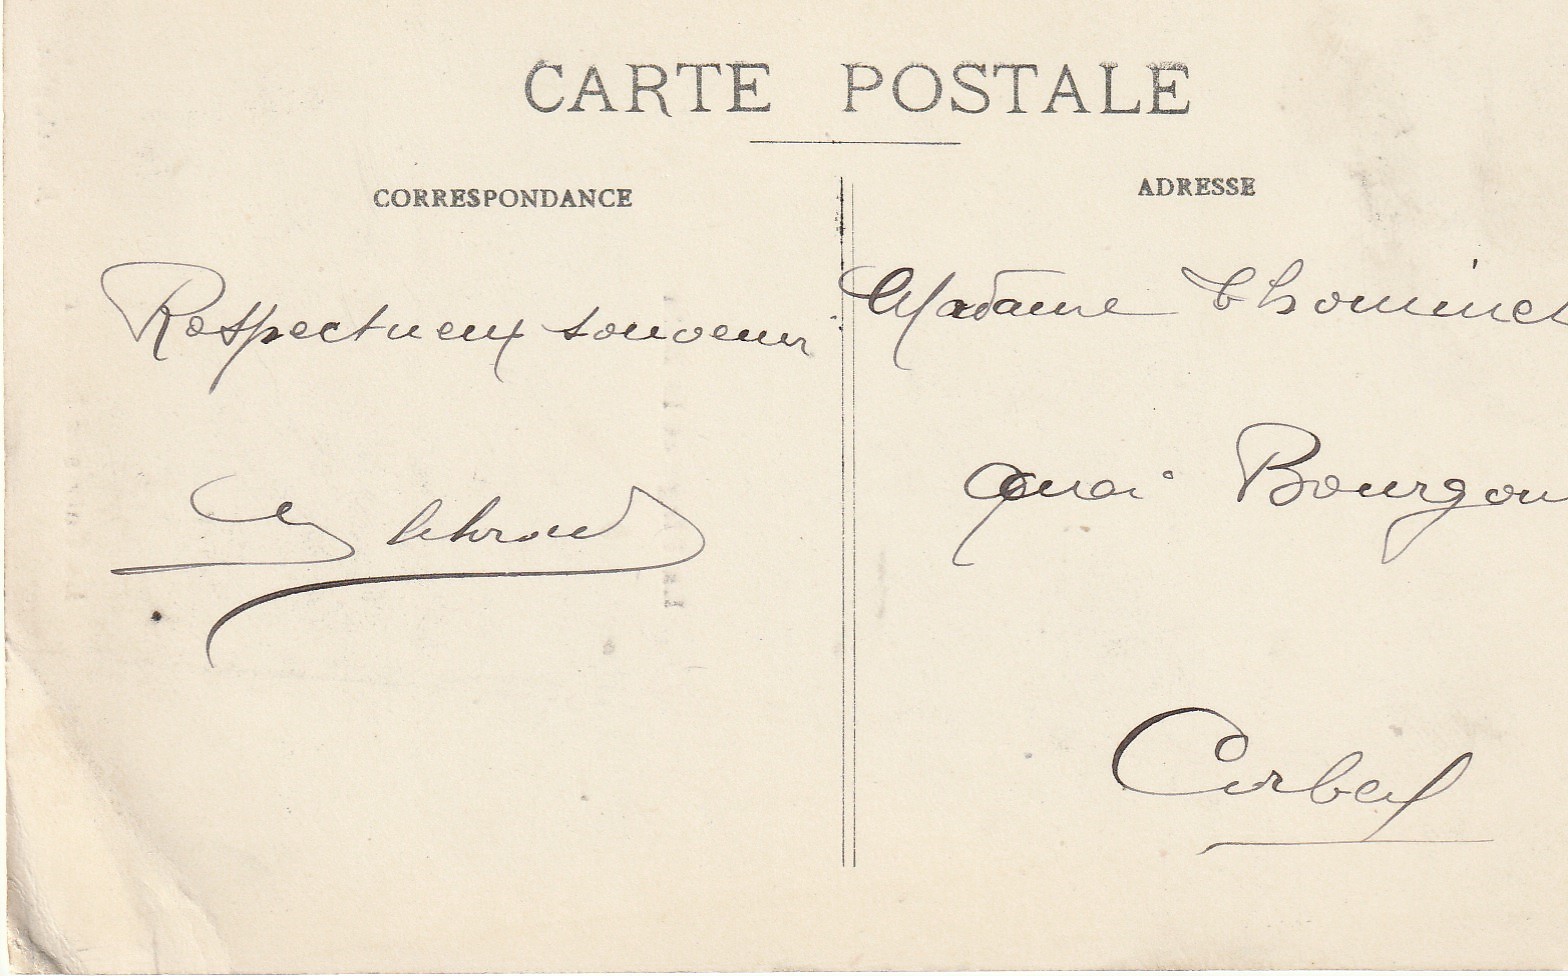 CARTE POSTALE
CORRESPONDANCE
ADRESSE
Respectueux souvenir
Madame Thominet
quai Bourgoin
Corbeil